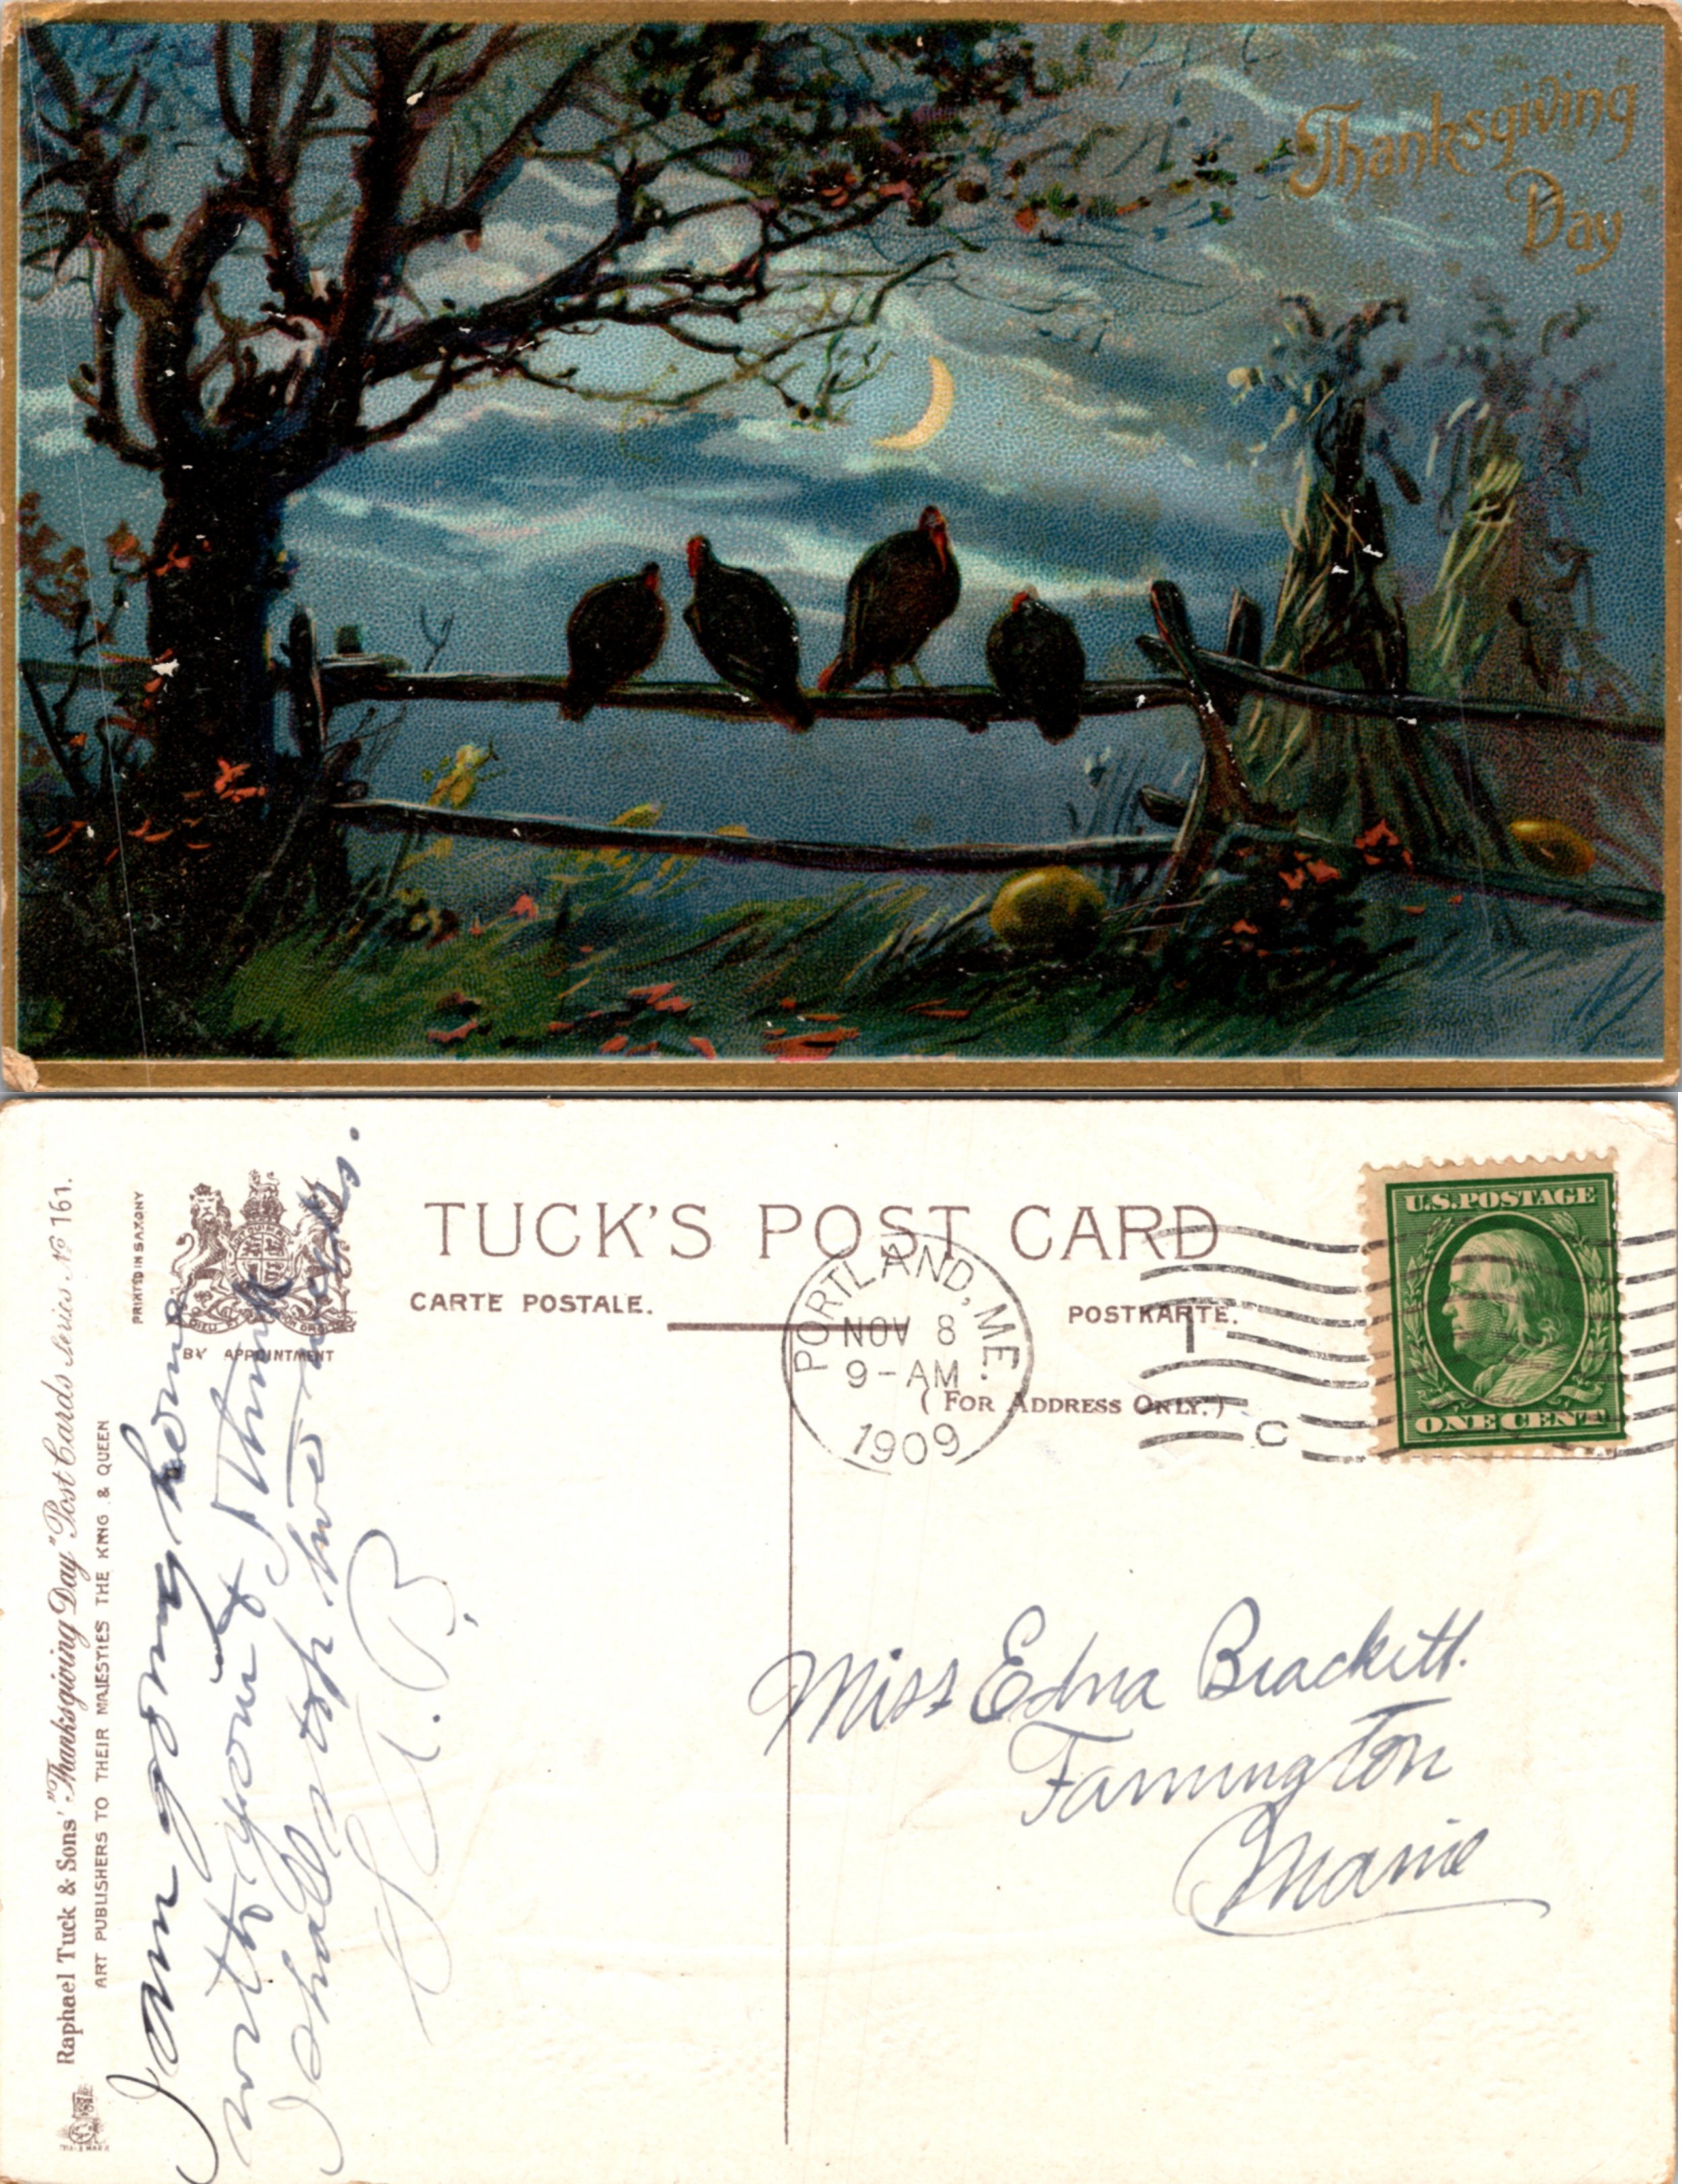 Thanksgiving
Day
Raphael Tuck & Sons' "Thanksgiving Day" Post Cards Series No 161.
ART PUBLISHERS TO THEIR MAJESTIES THE KING & QUEEN
PRINTED IN SAXONY
BY APPOINTMENT
TUCK'S POST CARD
CARTE POSTALE.
POSTKARTE.
(FOR ADDRESS ONLY.)
PORTLAND, ME.
NOV 8
9-AM
1909
C
U.S. POSTAGE
ONE CENT
I am going home
with you & I think
I shall stop two weeks.
B.
Miss Edna Brackett.
Farmington
Maine